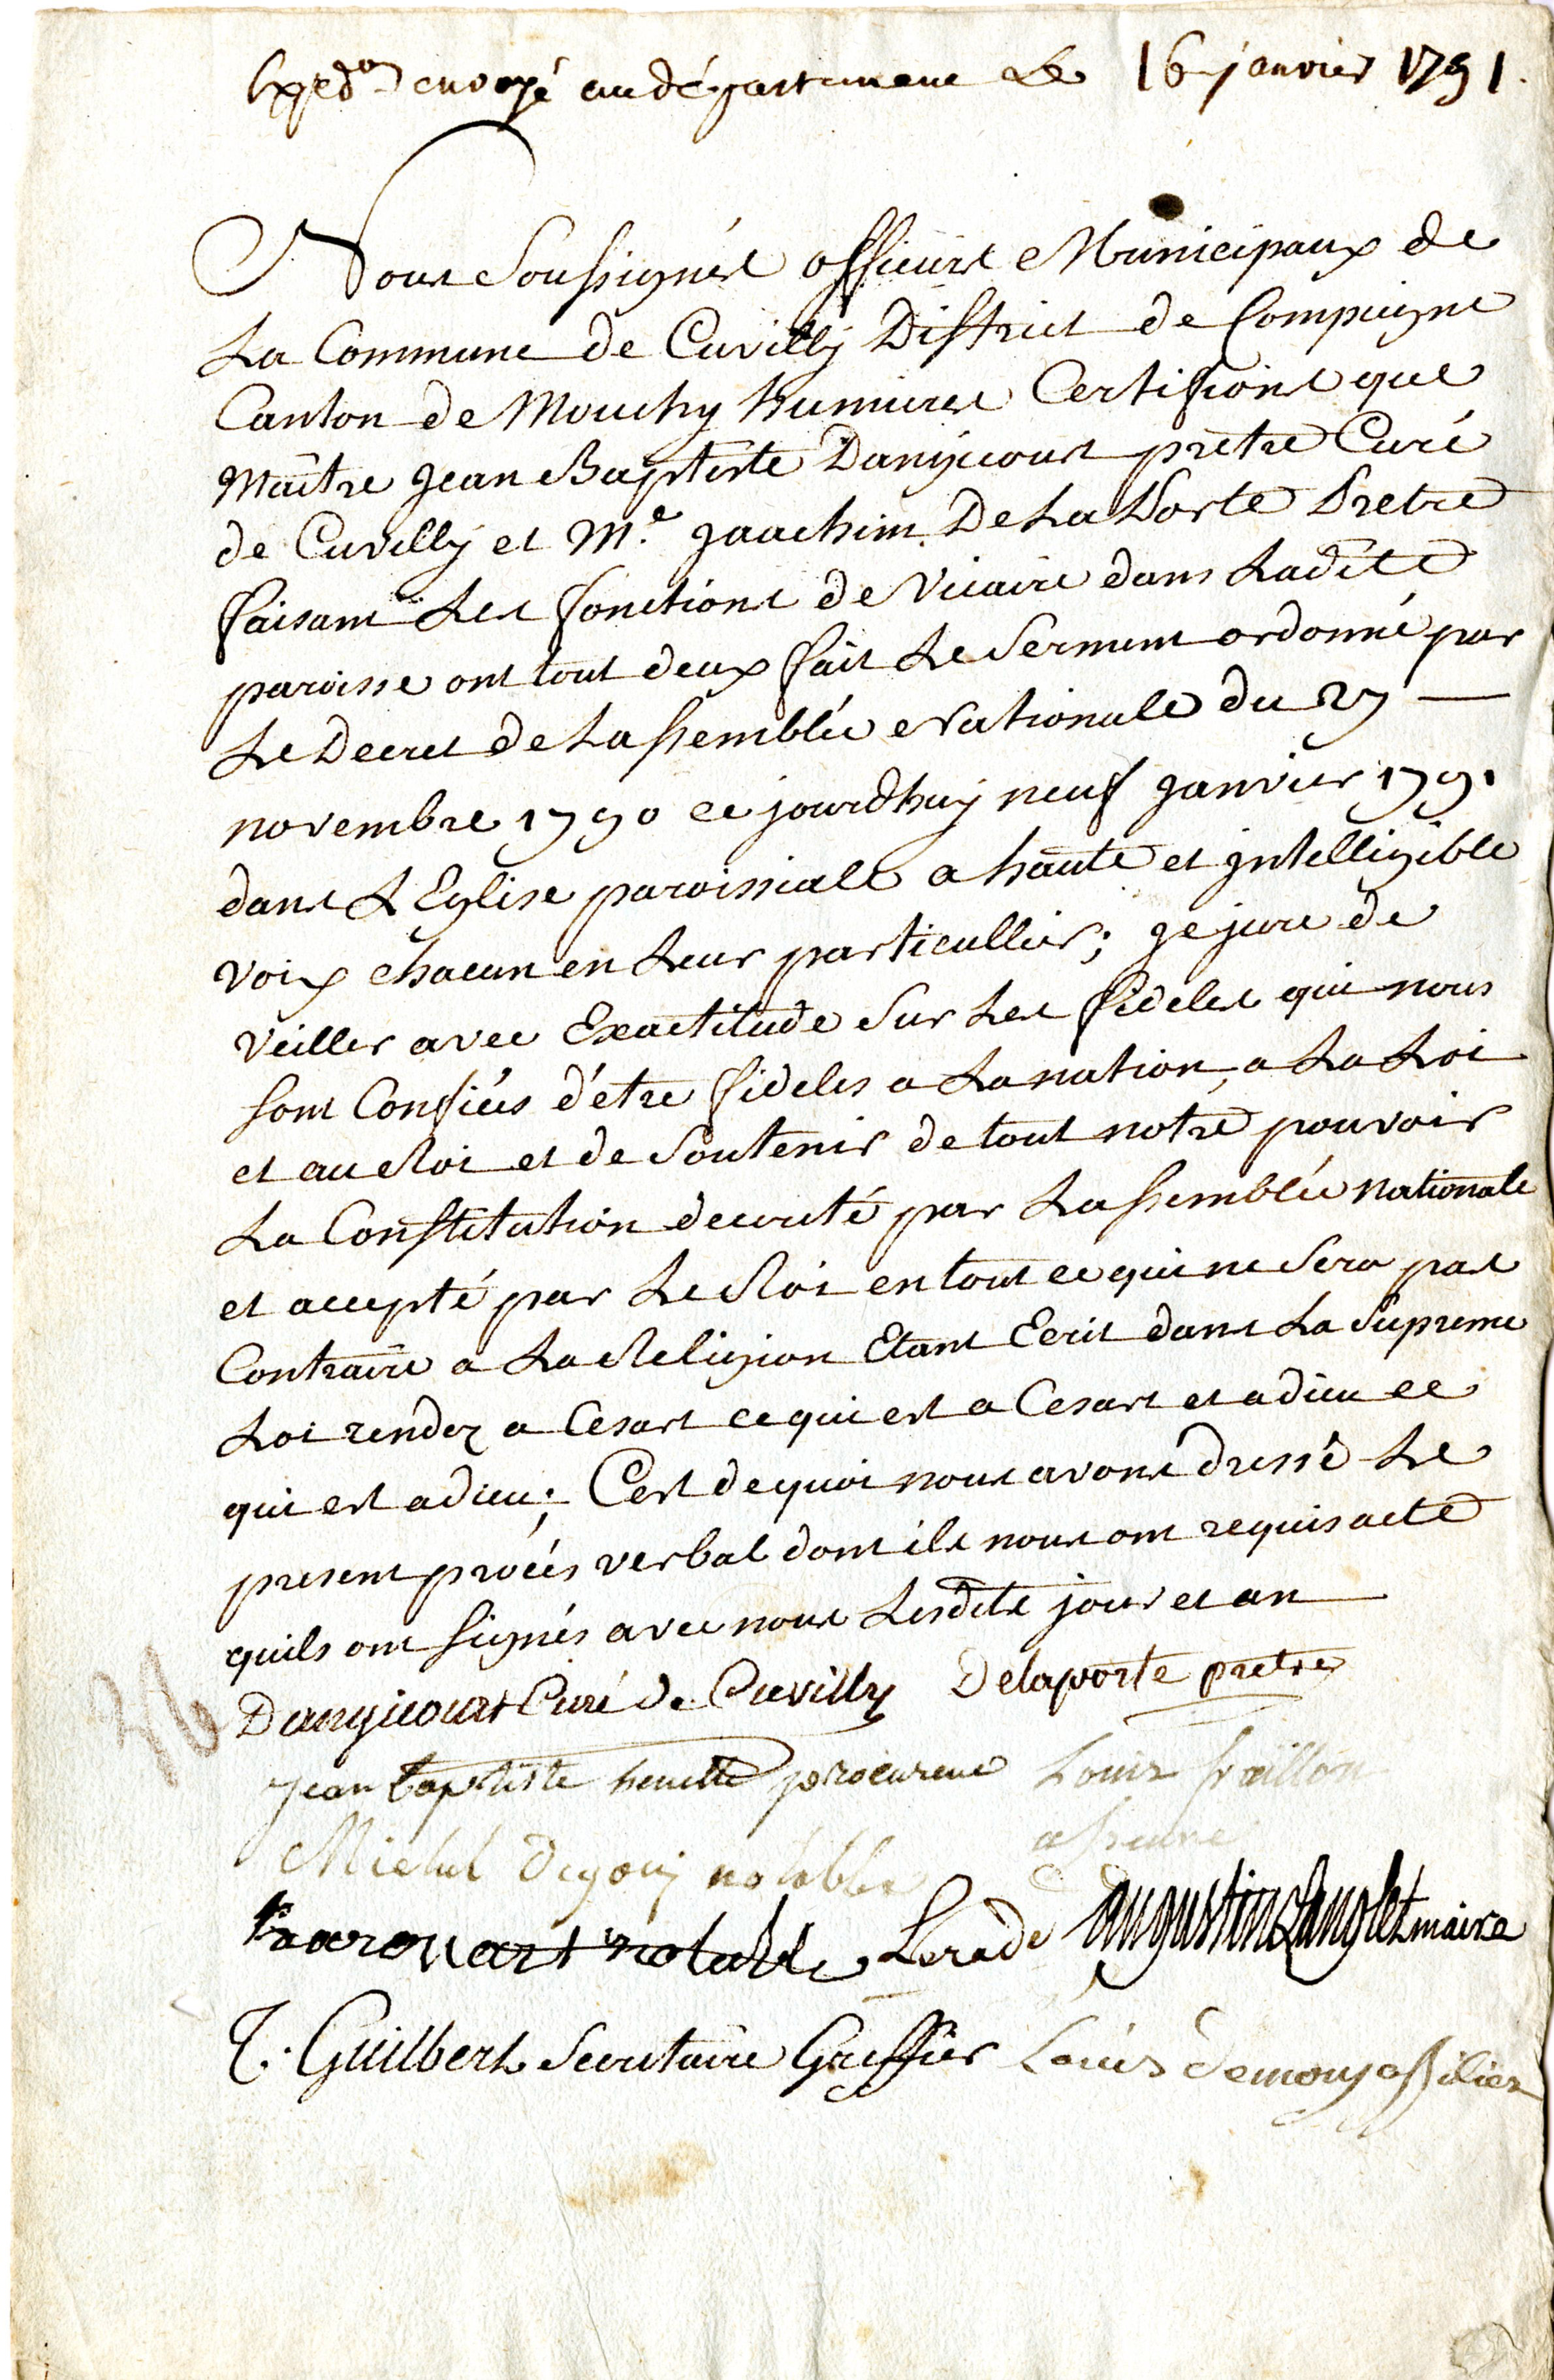 Expedon envoyé au département Le 16 janvier 1791.
Nous Soussignés officiers Municipaux de
La Commune de Cuvilly District de Compiegne
Canton de Mouchy humieres Certifions que
Maître Jean Baptiste Dangicourt prètre Curé
de Cuvilly et Me Joachim De La Porte Pretre
faisant Les fonctions de Vicaire dans Ladite
paroisse ont tout deux fait Le Serment ordonné par
Le Decret de Lassemblée Nationale du 27
novembre 1790 ce jourdhuy neuf Janvier 1791
dans L'Eglise paroissiale a haute et Intelligible
voix chacun en Leur particullier; Je jure de
veiller avec Exactitude Sur Les fideles qui nous
sont Confiés d'étre fideles a La nation, a La Loi
et au Roi et de Soutenir de tout notre pouvoir
La Constitution decreté par Lassemblée nationale
et accepté par Le Roi en tout ce qui ne Sera pas
Contraire a La Religion Etant Ecrit dans La Supreme
Loi rendez a Cesart ce qui est a Cesart et a dieu ce
qui est a dieu; C'est de quoi nous avons dressé Le
present procés verbal dont ils nous ont requis acte
quils ont signés avec nous Lesdits jour et an
Dangicourt Curé de Cuvilly Delaporte pretre
Jean baptiste procureur Louis
Michel notable
notable augustin Langlet maire
Guilbert Secretaire Greffier Louis demouy
36